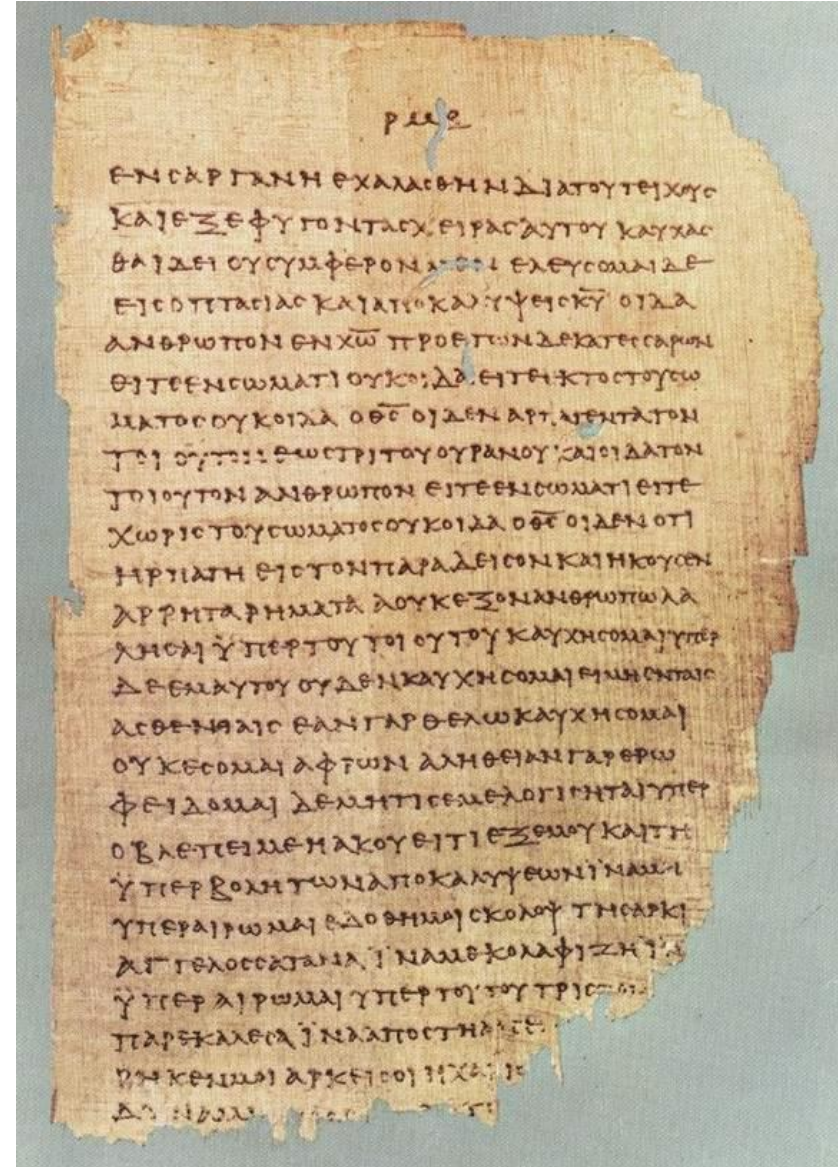 ρμε
ΕΝϹΑΡΓΑΝΗΕΧΑΛΑϹΘΗΝΔΙΑΤΟΥΤΕΙΧΟΥϹ
ΚΑΙΕΞΕΦΥΓΟΝΤΑϹΧΕΙΡΑϹΑΥΤΟΥΚΑΥΧΑϹ
ΘΑΙΔΕΙΟΥϹΥΜΦΕΡΟΝΜΕΝΕΛΕΥϹΟΜΑΙΔΕ
ΕΙϹΟΠΤΑϹΙΑϹΚΑΙΑΠΟΚΑΛΥΨΕΙϹΚ̅Υ̅ΟΙΔΑ
ΑΝΘΡΩΠΟΝΕΝΧ̅Ω̅ΠΡΟΕΤΩΝΔΕΚΑΤΕϹϹΑΡΩΝ
ΕΙΤΕΕΝϹΩΜΑΤΙΟΥΚΟΙΔΑΕΙΤΕΙΚΤΟϹΤΟΥϹΩ
ΜΑΤΟϹΟΥΚΟΙΔΑΟΘ̅Ϲ̅ΟΙΔΕΝΑΡΠΑΓΕΝΤΑΤΟΝ
ΤΟΙΟΥΤΟΝΕΩϹΤΡΙΤΟΥΟΥΡΑΝΟΥΚΑΙΟΙΔΑΤΟΝ
ΤΟΙΟΥΤΟΝΑΝΘΡΩΠΟΝΕΙΤΕΕΝϹΩΜΑΤΙΕΙΤΕ
ΧΩΡΙϹΤΟΥϹΩΜΑΤΟϹΟΥΚΟΙΔΑΟΘ̅Ϲ̅ΟΙΔΕΝΟΤΙ
ΗΡΠΑΓΗΕΙϹΤΟΝΠΑΡΑΔΕΙϹΟΝΚΑΙΗΚΟΥϹΕΝ
ΑΡΡΗΤΑΡΗΜΑΤΑΑΟΥΚΕΞΟΝΑΝΘΡΩΠΩΛΑ
ΛΗϹΑΙΫΠΕΡΤΟΥΤΟΙΟΥΤΟΥΚΑΥΧΗϹΟΜΑΙΥΠΕΡ
ΔΕΕΜΑΥΤΟΥΟΥΔΕΝΚΑΥΧΗϹΟΜΑΙΕΙΜΗΕΝΤΑΙϹ
ΑϹΘΕΝΙΑΙϹΕΑΝΓΑΡΘΕΛΩΚΑΥΧΗϹΟΜΑΙ
ΟΥΚΕϹΟΜΑΙΑΦΡΩΝΑΛΗΘΕΙΑΝΓΑΡΕΡΩ
ΦΕΙΔΟΜΑΙΔΕΜΗΤΙϹΕΜΕΛΟΓΙϹΗΤΑΙΥΠΕΡ
ΟΒΛΕΠΕΙΜΕΗΑΚΟΥΕΙΤΙΕΞΕΜΟΥΚΑΙΤΗ
ΫΠΕΡΒΟΛΗΤΩΝΑΠΟΚΑΛΥΨΕΩΝΪΝΑΜΗ
ΥΠΕΡΑΙΡΩΜΑΙΕΔΟΘΗΜΟΙϹΚΟΛΟΨΤΗϹΑΡΚΙ
ΑΓΓΕΛΟϹϹΑΤΑΝΑΪΝΑΜΕΚΟΛΑΦΙΖΗΪΝΑ
ΫΠΕΡΑΙΡΩΜΑΙΥΠΕΡΤΟΥΤΟΥΤΡΙϹ
ΠΑΡΕΚΑΛΕϹΑΪΝΑΑΠΟϹΤΗ
ΡΗΚΕΝΜΟΙΑΡΚΕΙϹΟΙΗΧΑΡΙϹ